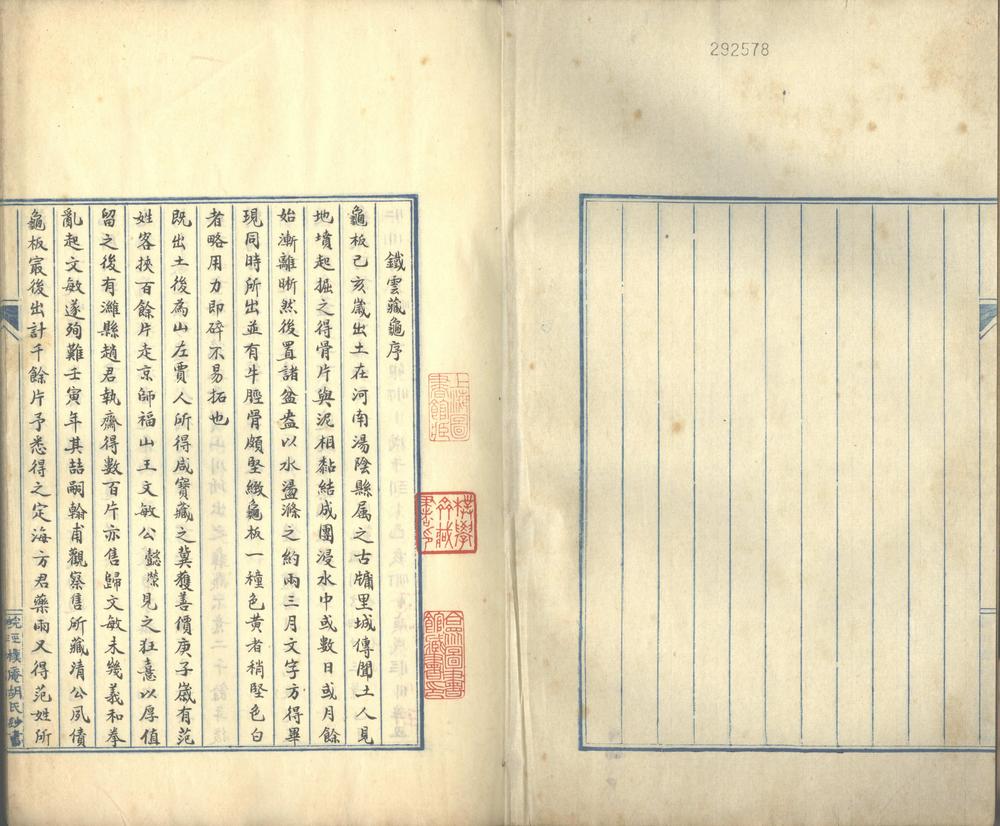 292578
鐵雲藏龜序
龜板己亥歲出土在河南湯陰縣属之古牖里城傳聞土人見
地墳起掘之得骨片與泥相黏結成團浸水中或數日或月餘
始漸離晰然後置諸盆盎以水盪滌之約兩三月文字方得畢
現同時所出並有牛脛骨頗堅緻龜板一種色黄者稍堅色白
者略用力即碎不易拓也
既出土後為山左賈人所得咸寶藏之冀獲善價庚子歲有范
姓客挾百餘片走京師福山王文敏公懿榮見之狂憙以厚值
留之後有濰縣趙君執齋得數百片亦售歸文敏未幾義和拳
亂起文敏遂殉難壬寅年其喆嗣翰甫觀察售所藏清公夙債
龜板冣後出計千餘片予悉得之定海方君藥雨又得范姓所
皖涇樸庵胡氏鈔書
上海圖書館藏
樸學齋藏書印
合眾圖書館藏書印